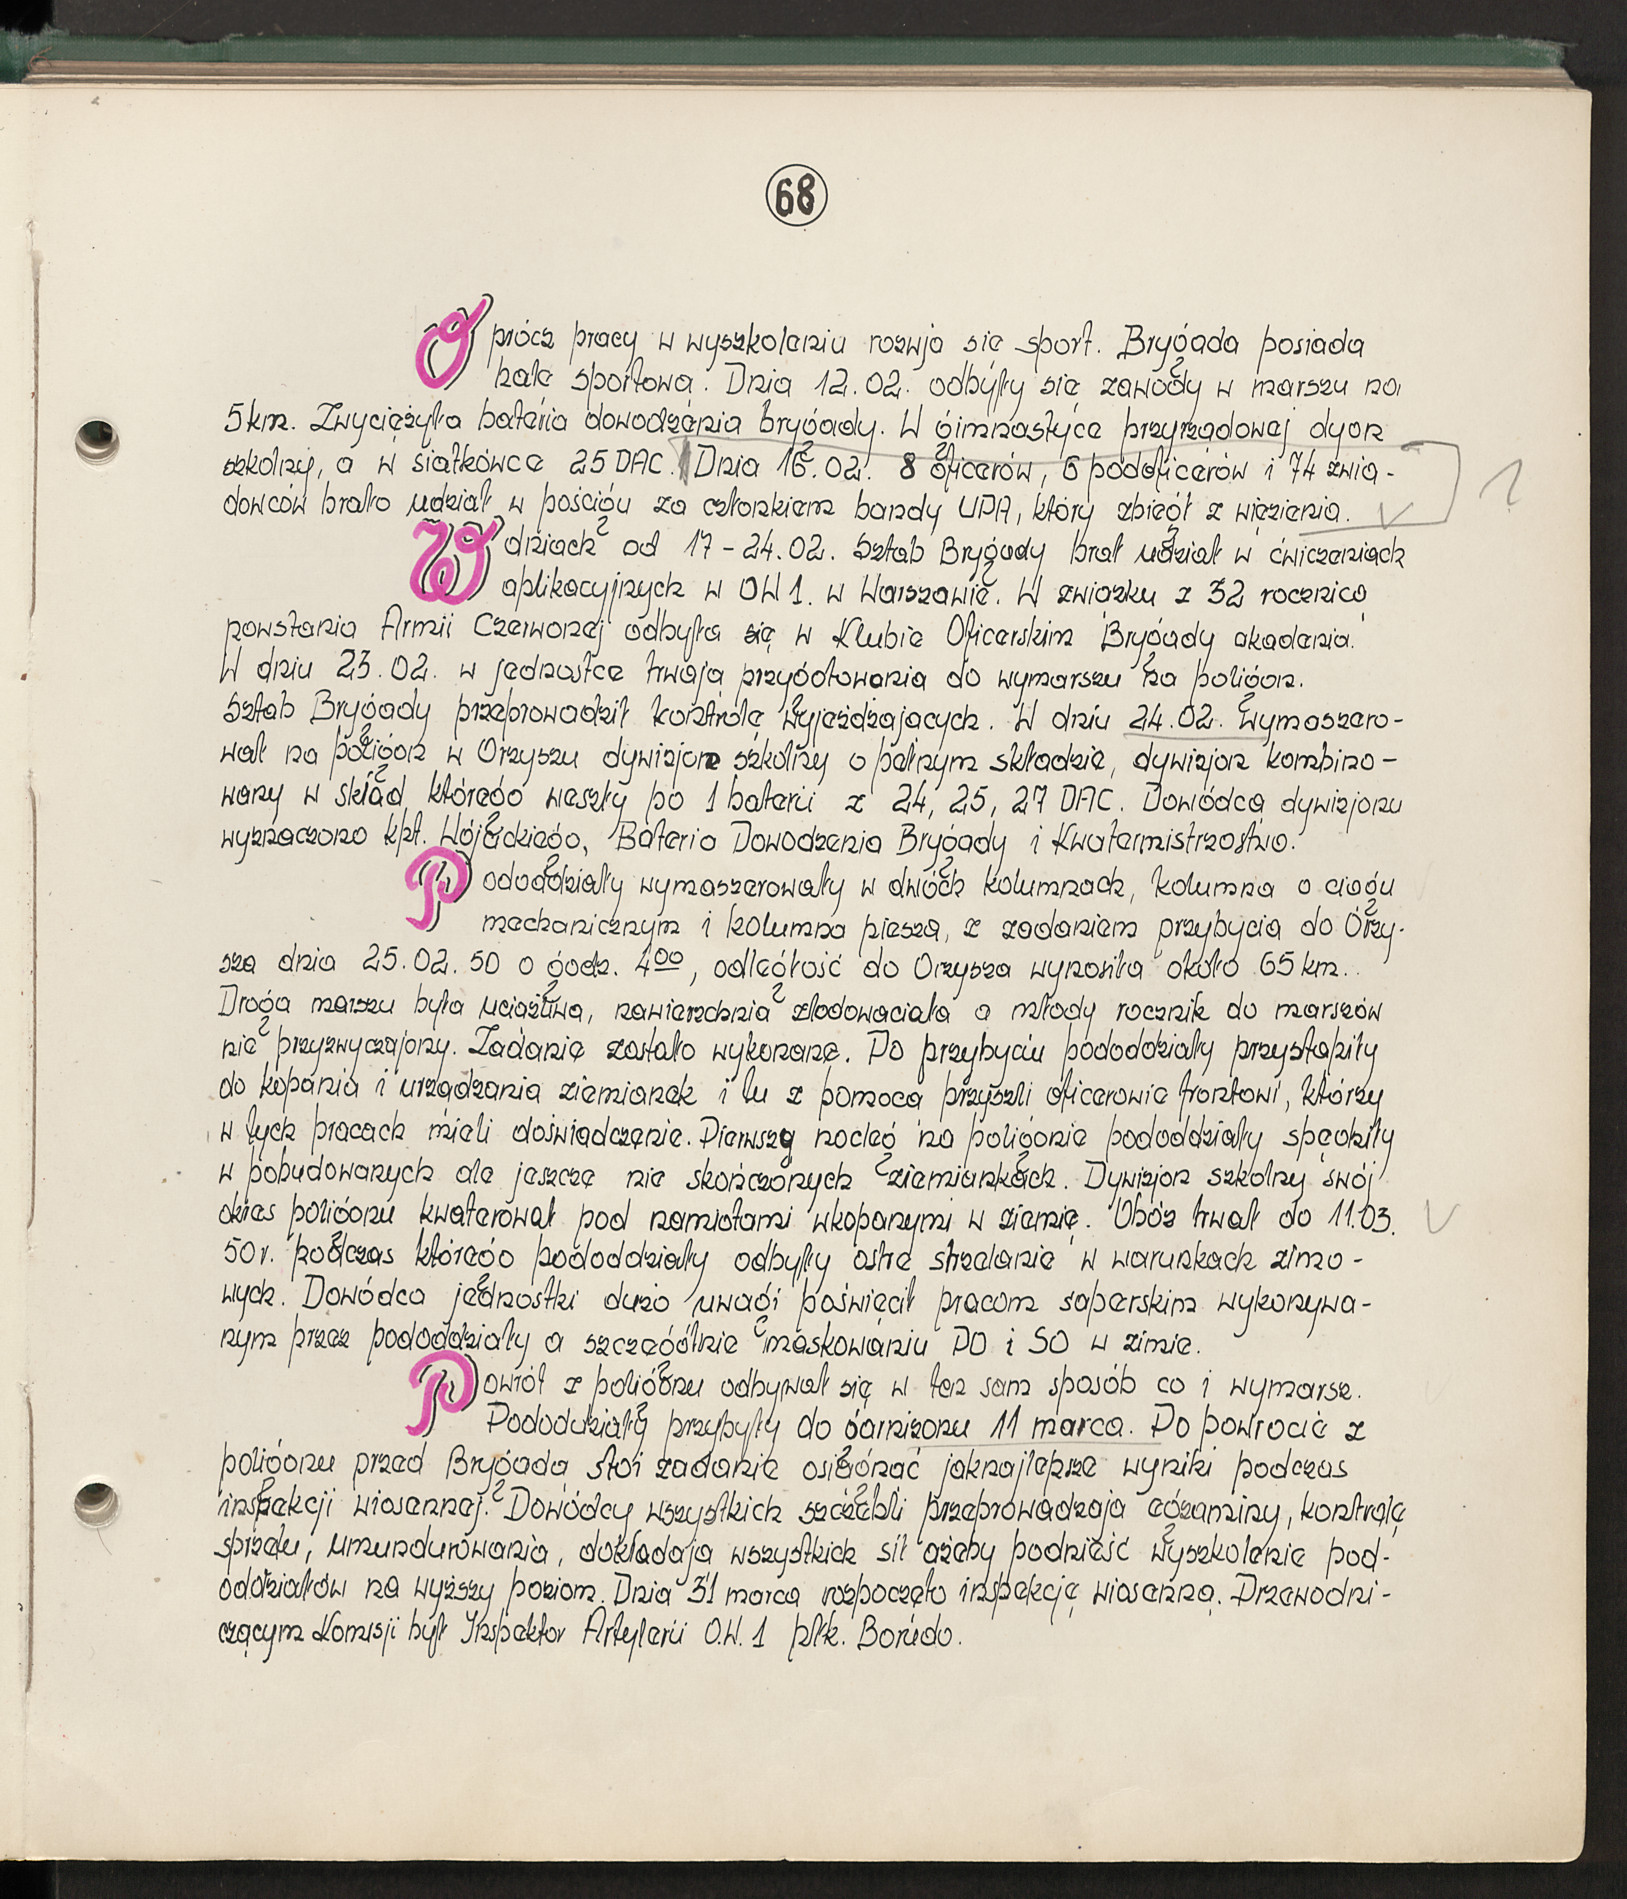 68
Oprócz pracy w wyszkoleniu rozwja sie sport. Brygada posiada
hale sportowa. Dnia 12.02. odbyły sie zawody w marszu na
5 km. Zwyciężyła bateria dowodzenia brygady. W gimnastyce przyrządowej dyon
szkolny, a w siatkówce 25 DAC. Dnia 16.02. 8 oficerów, 6 podoficerów i 74 zwia-
dowców brało udział w pościgu za członkiem bandy UPA, który zbiegł z więzienia.
W dniach od 17-24.02. Sztab Brygady brał udział w ćwiczeniach
aplikacyjnych w OW 1. w Warszawie. W zwiazku z 32 rocznica
powstania Armii Czerwonej odbyła się w Klubie Oficerskim Brygady akademia.
W dniu 23.02. w jednostce trwają przygotowania do wymarszu na poligon.
Sztab Brygady przeprowadził kontrolę wyjeżdzajacych. W dniu 24.02. wymaszero-
wał na poligon w Orzyszu dywizjon szkolny o pełnym składzie, dywizjon kombino-
wany w skład którego weszły po 1 baterii z 24, 25, 27 DAC. Dowódcą dywizjonu
wyznaczono kpt. Wójcickiego, Bateria Dowodzenia Brygady i Kwatermistrzostwo.
Pododdziały wymaszerowały w dwóch kolumnach, kolumna o ciagu
mechanicznym i kolumna piesza, z zadaniem przybycia do Orzy-
sza dnia 25.02.50 o godz. 4⁰⁰, odległość do Orzysza wynosiła około 65 km..
Droga marszu była uciażliwa, nawierzchnia zlodowaciała a młody rocznik do marszów
nie przyzwyczajony. Zadanie zostało wykonane. Po przybyciu pododdziały przystapiły
do kopania i urządzania ziemianek i tu z pomoca przyszli oficerowie frontowi, którzy
w tych pracach mieli doświadczenie. Pierwszy nocleg na poligonie pododdziały spędziły
w pobudowanych ale jeszcze nie skończonych ziemiankach. Dywizjon szkolny swój
okres poligonu kwaterował pod namiotami wkopanymi w ziemię. Obóz trwał do 11.03.
50 r. podczas którego pododdziały odbyły ostre strzelanie w warunkach zimo-
wych. Dowódca jednostki dużo uwagi poświęcił pracom saperskim wykonywa-
nym przez pododdziały a szczególnie maskowaniu PO i SO w zimie.
Powrót z poligonu odbywał się w ten sam sposób co i wymarsz.
Pododdziały przybyły do garnizonu 11 marca. Po powrocie z
poligonu przed Brygada stoi zadanie osiągnać jaknajlepsze wyniki podczas
inspekcji wiosennej. Dowódcy wszystkich szczebli przeprowadzaja egzaminy, kontrolę
sprzetu, umundurowania, dokładaja wszystkich sił ażeby podnieść wyszkolenie pod-
oddziałów na wyższy poziom. Dnia 31 marca rozpoczęto inspekcję wiosenną. Przewodni-
czącym Komisji był Inspektor Artylerii O.W. 1 płk.